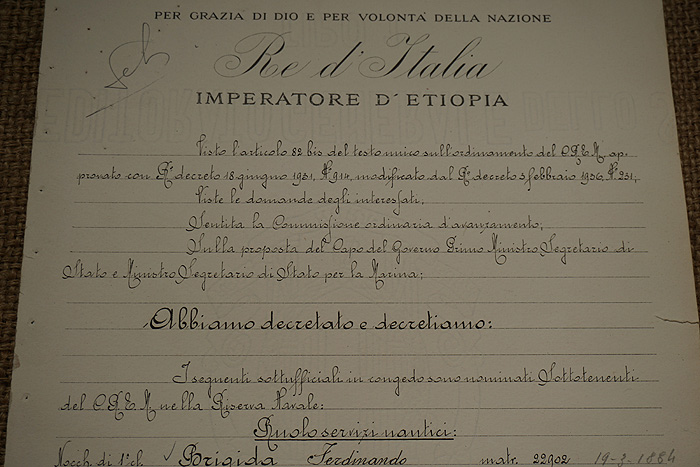 PER GRAZIA DI DIO E PER VOLONTA' DELLA NAZIONE
Re d'Italia
IMPERATORE D'ETIOPIA
Visto l'articolo 82 bis del testo unico sull'ordinamento del C.R.E.M. ap-
provato con R.° decreto 18 giugno 1931, N.° 914, modificato dal R.° decreto 3 febbraio 1936, N.° 231;
Viste le domande degli interessati;
Sentita la Commissione ordinaria d'avanzamento;
Sulla proposta del Capo del Governo Primo Ministro Segretario di
Stato e Ministro Segretario di Stato per la Marina;
Abbiamo decretato e decretiamo:
I seguenti sottufficiali in congedo sono nominati Sottotenenti
del C.R.E.M. nella Riserva Navale:
Ruolo servizi nautici:
Nocch. di 1ª cl. Brigida Ferdinando matr. 22902 19-3-1884